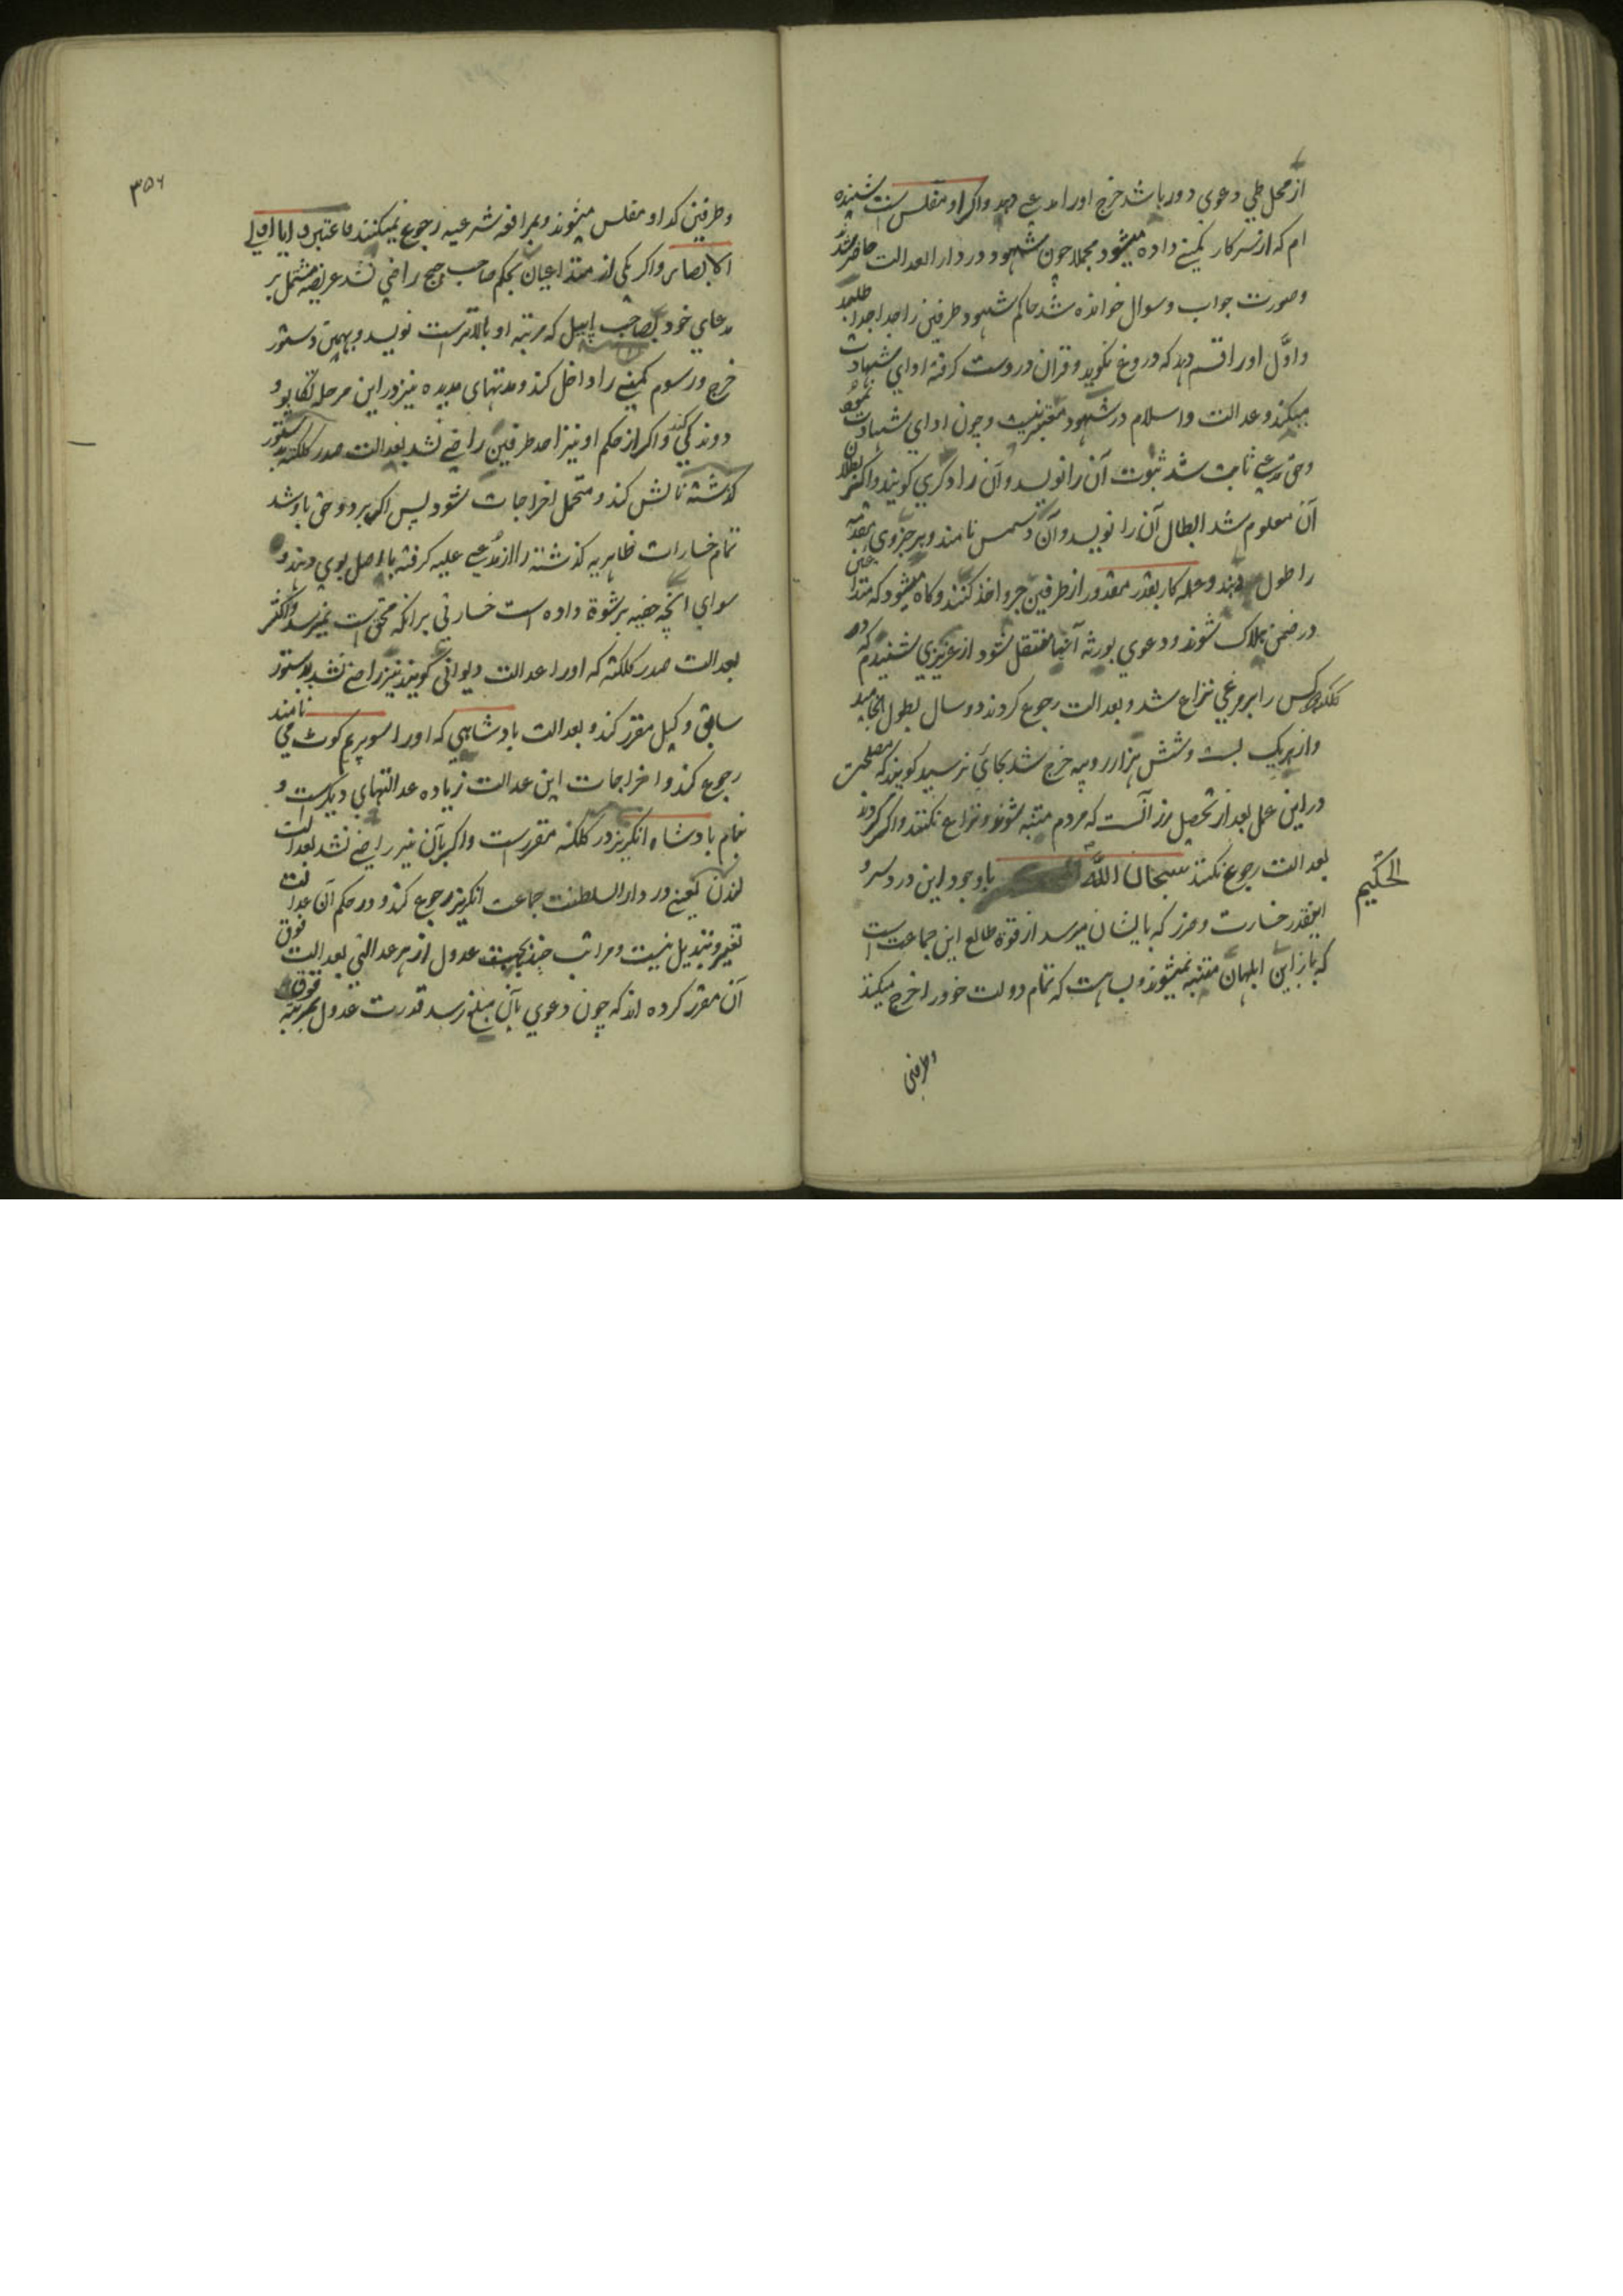 از محل طی دعوی دور باشد خرج او را مدعی دهد و اکر او مفلس است شنیده
ام که از سرکار کمپنی داده میشود مجملا چون شهود در دار العدالت حاضر شد
و صورت جواب و سوال خوانده شد حاکم شهود طرفین را جدا جدا طلبد
و اوّل او را قسم دهد که دروغ نکوید و قران در دست کرفته ادای شهادت
میکند و عدالت و اسلام در شهود معتبر نیست و چون ادای شهادت نمود
و حق مدعی ثابت شد ثبوت آن را نویسد و آن را دکری کویند و اکر بطلان
آن معلوم شد ابطال آن را نویسد و آن را دسمس نامند و هر جزوی مقدمه
را طول دهند و عمله کار بقدر مقدور از طرفین جر و اخذ کنند و کاه میشود که متداعیین
در ضمن هلاک شوند و دعوی بورثه آنها منتقل شود از عزیزی شنیدم که دو
کس را بر مرغی نزاع شد و بعدالت رجوع کردند دو سال بطول انجامید
و از هر یک بست و شش هزار روپیه خرج شد بجائی نرسید کویند که مصلحت
در این عمل بعد از تحصیل زر آنست که مردم متنبه شوند و نزاع نکنند و اکر کردند
بعدالت رجوع نکنند سبحان الله با وجود این درد سر و
الحکیم
اینقدر خسارت و ضرر که بایشان میرسد از قوة طالع این جماعت است
که باز این ابلهان متنبه نمیشوند و بسا هست که تمام دولت خود را خرج میکنند
و طرفین
۳۵۶
و طرفین کدا و مفلس میشوند و بمرافعه شرعیه رجوع نمیکنند فاعتبروا یا اولی
الابصار و اکر یکی از متداعیان بحکم صاحب جج راضی نشد عریضه مشتمل بر
مدعای خود بصاحب اپیل که مرتبه او بالاتر است نویسد و بهمین دستور
خرج و رسوم کمپنی را داخل کند و مدتهای مدیده نیز در این مرحله تکاپو و
دوندکی کند و اکر از حکم او نیز احد طرفین راضی نشد بعدالت صدر کلکته بدستور
کذشته نالش کند و متحمل اخراجات شود پس اکر برد و حق با و شد
تمام خسارات ظاهریه کذشته را از مدعی علیه کرفته با اصل بوی دهند و
سوای انچه خفیه برشوة داده است خسارتی بر انکه محق است نمیرسد و اکثر
بعدالت صدر کلکته که او را عدالت دیوانی کویند نیز راضی نشد بدستور
سابق وکیل مقرر کند و بعدالت بادشاهی که او را سوپریم کوٹ می نامند
رجوع کند و اخراجات این عدالت زیاده عدالتهای دیکرست و
بنام بادشاه انکریز در کلکته مقررست و اکر بآن نیز راضی نشد بعدالت
لندن یعنی در دار السلطنت جماعت انکریز رجوع کند و در حکم آن عدالت
تغیر و تبدیل نیست و مراتب چند بجهت عدول از هر عدالتی بعدالت فوق
آن مقرر کرده اند که چون دعوی بآن مبلغ رسد قدرت عدول بمرتبه فوق